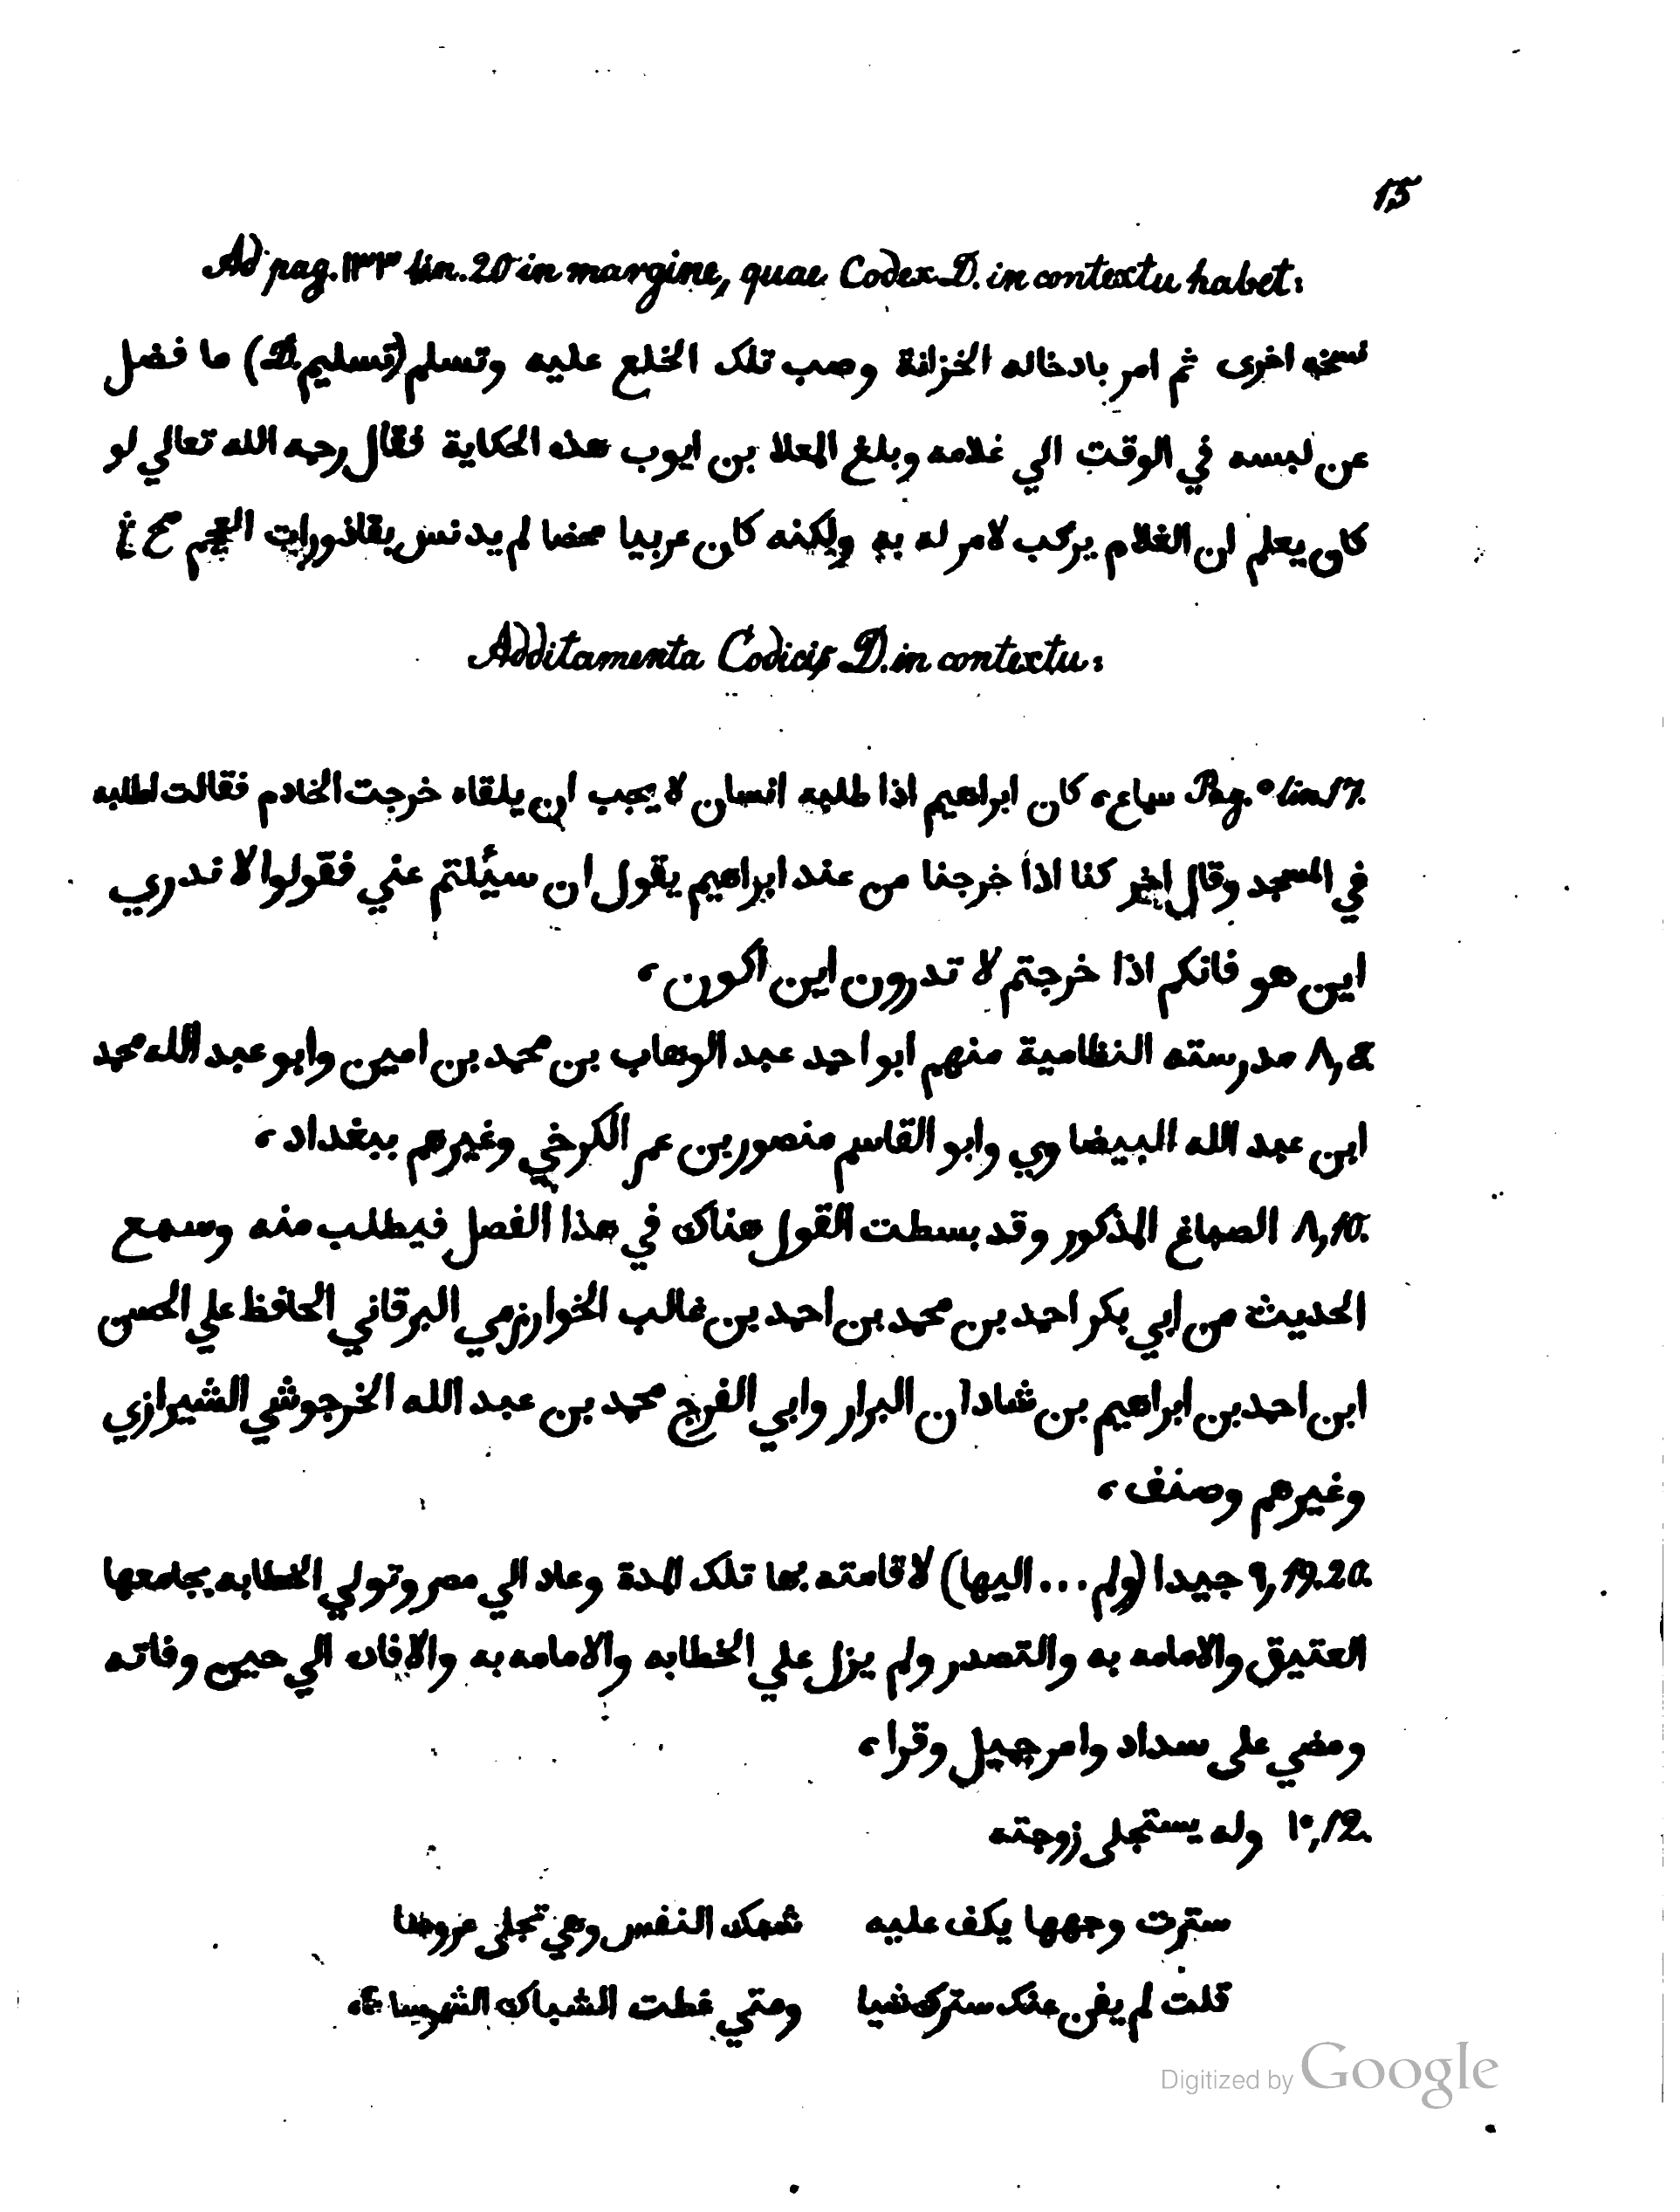 15
Ad pag. ١٣٣ lin. 20 in margine, quae Codex D. in contextu habet:
نسخه اخرى ثم امر بادخاله الخزانة وصب تلك الخلع عليه وتسلم (تسليم D.) ما فضل
عن لبسه في الوقت الي غلامه وبلغ المعلا بن ايوب هذه الحكاية فقال رحمه الله تعالي لو
كان يعلم ان الغلام يركب لامر له به ولكنه كان عربيا محضا لم يدنس بقاذورات العجم صح
Additamenta Codicis D. in contextu:
Pag. ٥ lin. 17. سماع، كان ابراهيم اذا طلبه انسان لا يجب ان يلقاه خرجت الخادم فقالت اطلبه
في المسجد وقال اخر كنا اذا خرجنا من عند ابراهيم يقول ان سئلتم عني فقولوا لا ندري
اين هو فانكم اذا خرجتم لا تدرون اين اكون،
٨, 5. مدرسته النظامية منهم ابو احمد عبد الوهاب بن محمد بن امين وابو عبد الله محمد
ابن عبد الله البيضاوي وابو القاسم منصور بن عمر الكرخي وغيرهم ببغداد،
٨, 10. الصباغ المذكور وقد بسطت القول هناك في هذا الفصل فيطلب منه وسمع
الحديث من ابي بكر احمد بن محمد بن احمد بن غالب الخوارزمي البرقاني الحافظ علي الحسن
ابن احمد بن ابراهيم بن شادان البرار وابي الفرج محمد بن عبد الله الخرجوشي الشيرازي
وغيرهم وصنف،
٩, 19. 20. جيدا (ولم ... اليها) لاقامته بها تلك المدة وعاد الي مصر وتولي الخطابه بجامعها
العتيق والامامه به والتصدر ولم يزل علي الخطابه والامامه به والافاد الي حين وفاته
ومضي على سداد وامر جميل وقرا،
١٠, 12. وله يستجلى زوجته
سترت وجهها يكف عليه شبك النفس وهي تجلى عروسا
قلت لم يغن عنك سترك شيا ومتي غطت الشباك الشموسا
Digitized by Google